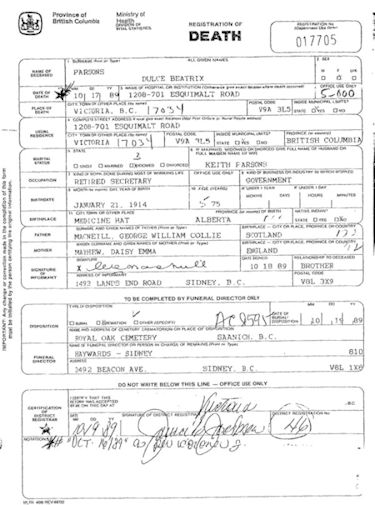 Province of British Columbia
Ministry of Health
DIVISION OF VITAL STATISTICS
REGISTRATION OF
DEATH
REGISTRATION No.
(Department Use Only)
017705
1. SURNAME (Print or Type) ALL GIVEN NAMES 2. SEX
NAME OF DECEASED
PARSONS
DULCE BEATRIX
M F
DATE OF DEATH
MM DD YY
10 17 89
3. NAME OF HOSPITAL OR INSTITUTION (Otherwise give exact location where death occurred)
1208-701 ESQUIMALT ROAD
OFFICE USE ONLY
5-000
PLACE OF DEATH
CITY, TOWN OR OTHER PLACE (by name)
VICTORIA, B.C. 17034
POSTAL CODE
V9A 3L5
INSIDE MUNICIPAL LIMITS?
STATE YES NO
USUAL RESIDENCE
4. COMPLETE STREET ADDRESS
1208-701 ESQUIMALT ROAD
CITY, TOWN OR OTHER PLACE (by name) POSTAL CODE INSIDE MUNICIPAL LIMITS? PROVINCE (or country)
VICTORIA 17034 V9A 3L5 STATE YES NO BRITISH COLUMBIA
MARITAL STATUS
5. STATE
SINGLE MARRIED WIDOWED DIVORCED
6. IF MARRIED, WIDOWED OR DIVORCED GIVE FULL NAME OF HUSBAND OR FULL MAIDEN NAME OF WIFE
KEITH PARSONS
OCCUPATION
7. KIND OF WORK DONE DURING MOST OF WORKING LIFE OFFICE USE ONLY 8. KIND OF BUSINESS OR INDUSTRY IN WHICH WORKED
RETIRED SECRETARY GOVERNMENT
BIRTHDATE
9. MONTH (by name), DAY, YEAR OF BIRTH 10. AGE (YEARS) IF UNDER 1 YEAR IF UNDER 1 DAY
MONTHS DAYS HOURS MINUTES
JANUARY 21, 1914 75
BIRTHPLACE
11. CITY, TOWN OR OTHER PLACE PROVINCE (or country) OF BIRTH NATIVE INDIAN?
MEDICINE HAT ALBERTA YES NO
FATHER
SURNAME AND GIVEN NAMES OF FATHER (Print or Type) BIRTHPLACE — CITY OR PLACE, PROVINCE OR COUNTRY
MCNEILL, GEORGE WILLIAM COLLIE SCOTLAND
MOTHER
MAIDEN SURNAME AND GIVEN NAMES OF MOTHER (Print or Type) BIRTHPLACE — CITY OR PLACE, PROVINCE OR COUNTRY
MATHEW, DAISY EMMA ENGLAND
SIGNATURE OF INFORMANT
SIGNATURE DATE SIGNED RELATIONSHIP TO DECEASED
10 18 89 BROTHER
ADDRESS OF INFORMANT POSTAL CODE
1493 LANDS END ROAD SIDNEY, B.C. V8L 3X9
TO BE COMPLETED BY FUNERAL DIRECTOR ONLY
DISPOSITION
TYPE OF DISPOSITION
BURIAL CREMATION OTHER (SPECIFY)
DATE OF BURIAL/DISPOSITION
MM DD YY
10 19 89
NAME AND ADDRESS OF CEMETERY, CREMATORIUM OR PLACE OF DISPOSITION
ROYAL OAK CEMETERY SAANICH, B.C.
FUNERAL DIRECTOR
NAME OF FUNERAL DIRECTOR OR PERSON IN CHARGE OF REMAINS (Print or Type)
HAYWARDS - SIDNEY 810
ADDRESS
2492 BEACON AVE. SIDNEY, B.C. V8L 1X8
DO NOT WRITE BELOW THIS LINE — OFFICE USE ONLY
CERTIFICATION OF DISTRICT REGISTRAR
I CERTIFY THAT THIS RETURN WAS ACCEPTED BY ME ON THIS DAY AT
Victoria B.C.
MM DD YY
10 19 89
SIGNATURE OF DISTRICT REGISTRAR DISTRICT REGISTRATION No.
NOTATIONS
IMPORTANT! Any change or correction made in the completion of the form must be initialled by the person certifying the original information.